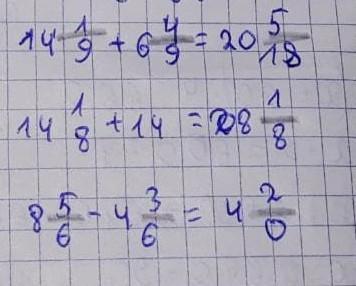 14 1/9 + 6 4/9 = 20 5/18
14 1/8 + 14 = 28 1/8
8 5/6 - 4 3/6 = 4 2/0